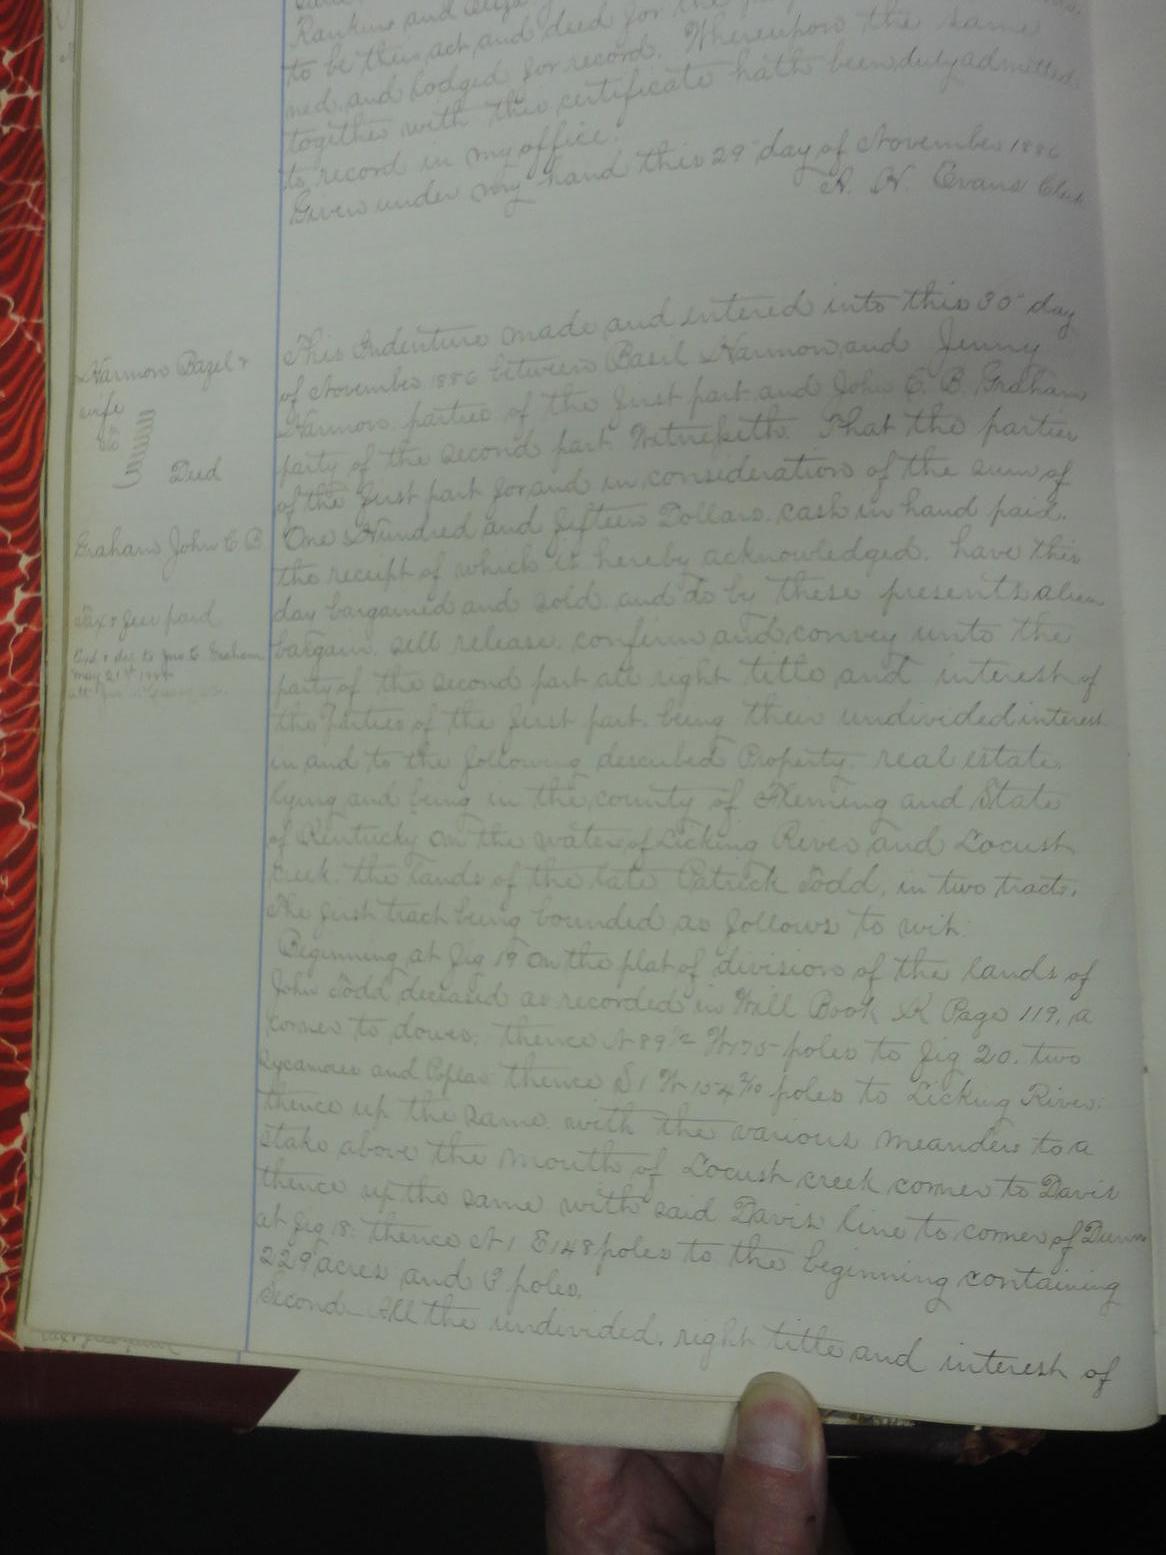 Rankins and Eliza
to be their act and deed for the
ned and lodged for record. Whereupon the same
together with this certificate hath been duly admitted
to record in my office.
Given under my hand this 29" day of November 1886
Evans Clerk
Harmon Bazel &
wife
Deed
Graham John C B
Tax & fees paid
May 21st
This Indenture made and entered into this 30" day
of November 1886 between Basil Harmon and Jenny
Harmon parties of the first part and John C. B. Graham
party of the second part Witnesseth. That the parties
of the first part for and in consideration of the sum of
One Hundred and fifteen Dollars. cash in hand paid.
the receipt of which is hereby acknowledged. have this
day bargained and sold and do by these presents alien
bargain. sell release. confirm and convey unto the
party of the second part all right title and interest of
the parties of the first part. being their undivided interest
in and to the following described Property. real estate.
lying and being in the county of Fleming and State
of Kentucky on the water of Licking River and Locust
creek. the lands of the late Patrick Todd, in two tracts.
The first tract being bounded as follows to wit:
Beginning at fig 19 on the plat of division of the lands of
John Todd deceased as recorded in Will Book K Page 119, a
corner to dower. thence N 89½ W 175 poles to fig 20. two
Sycamores and Poplar thence S 1 W poles to Licking River.
thence up the same with the various meanders to a
stake above the mouth of Locust creek corner to Davis
thence up the same with said Davis line to corner of
at fig 18. thence N 1 E 148 poles to the beginning containing
229 acres and poles.
Second. All the undivided, right title and interest of